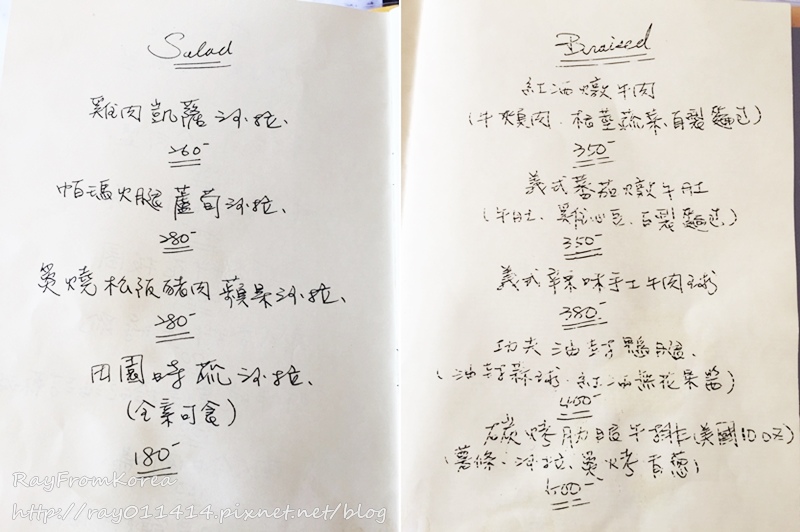 Salad
雞肉凱薩沙拉、
260-
帕瑪火腿蘆筍沙拉、
280-
炙燒松阪豬肉蘋果沙拉、
280-
田園時蔬沙拉、
(全素可食)
180-
Braised
紅酒燉牛肉
(牛頰肉、根莖蔬菜、自製麵包)
350-
義式蕃茄燉牛肚
(牛肚、雞心豆、自製麵包)
350-
義式辛辣味手工牛肉球
380-
功夫油封鴨腿、
(油封蒜球、紅酒無花果醬)
450-
炭烤肋眼牛排(美國10oz)
(薯條、沙拉、炙烤青蔥)
RayFromKorea
https://ray011414.pixnet.net/blog